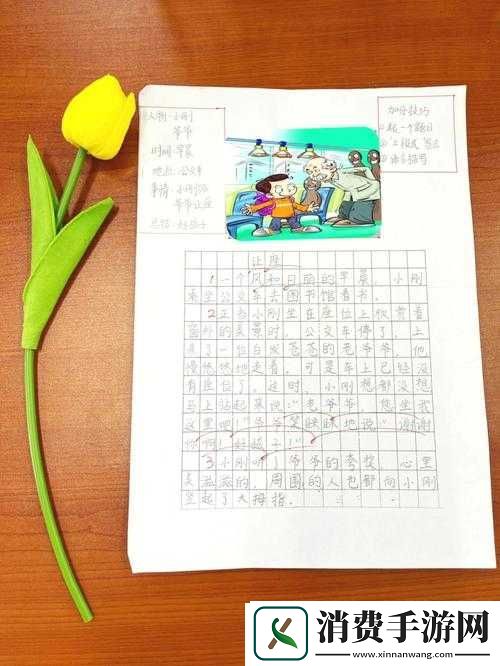 人物：小刚
爷爷
时间：早晨
地点：公交车
事情：小刚给
爷爷让座
总结：好孩子
加分技巧
取一个题目
三段式 写法
语言描写
让座
1 一个风和日丽的早晨，小刚
乘坐公交车去图书馆看书。
2 正当小刚坐在座位上欣赏着
窗外的美景时，公交车停了，上
来了一位白发苍苍的老爷爷，他
慢慢地走着，可是车上已经没
有座位了，这时，小刚想都没想
马上站起来说：“老爷爷，您坐我
这里吧！”爷爷笑眯眯地说：“谢谢
你啊！好孩子！”
3 小刚听 爷爷的夸奖，心里
美滋滋的，周围的人也都向小刚
竖起了大拇指。
消费手游网
www.xinnanwang.com